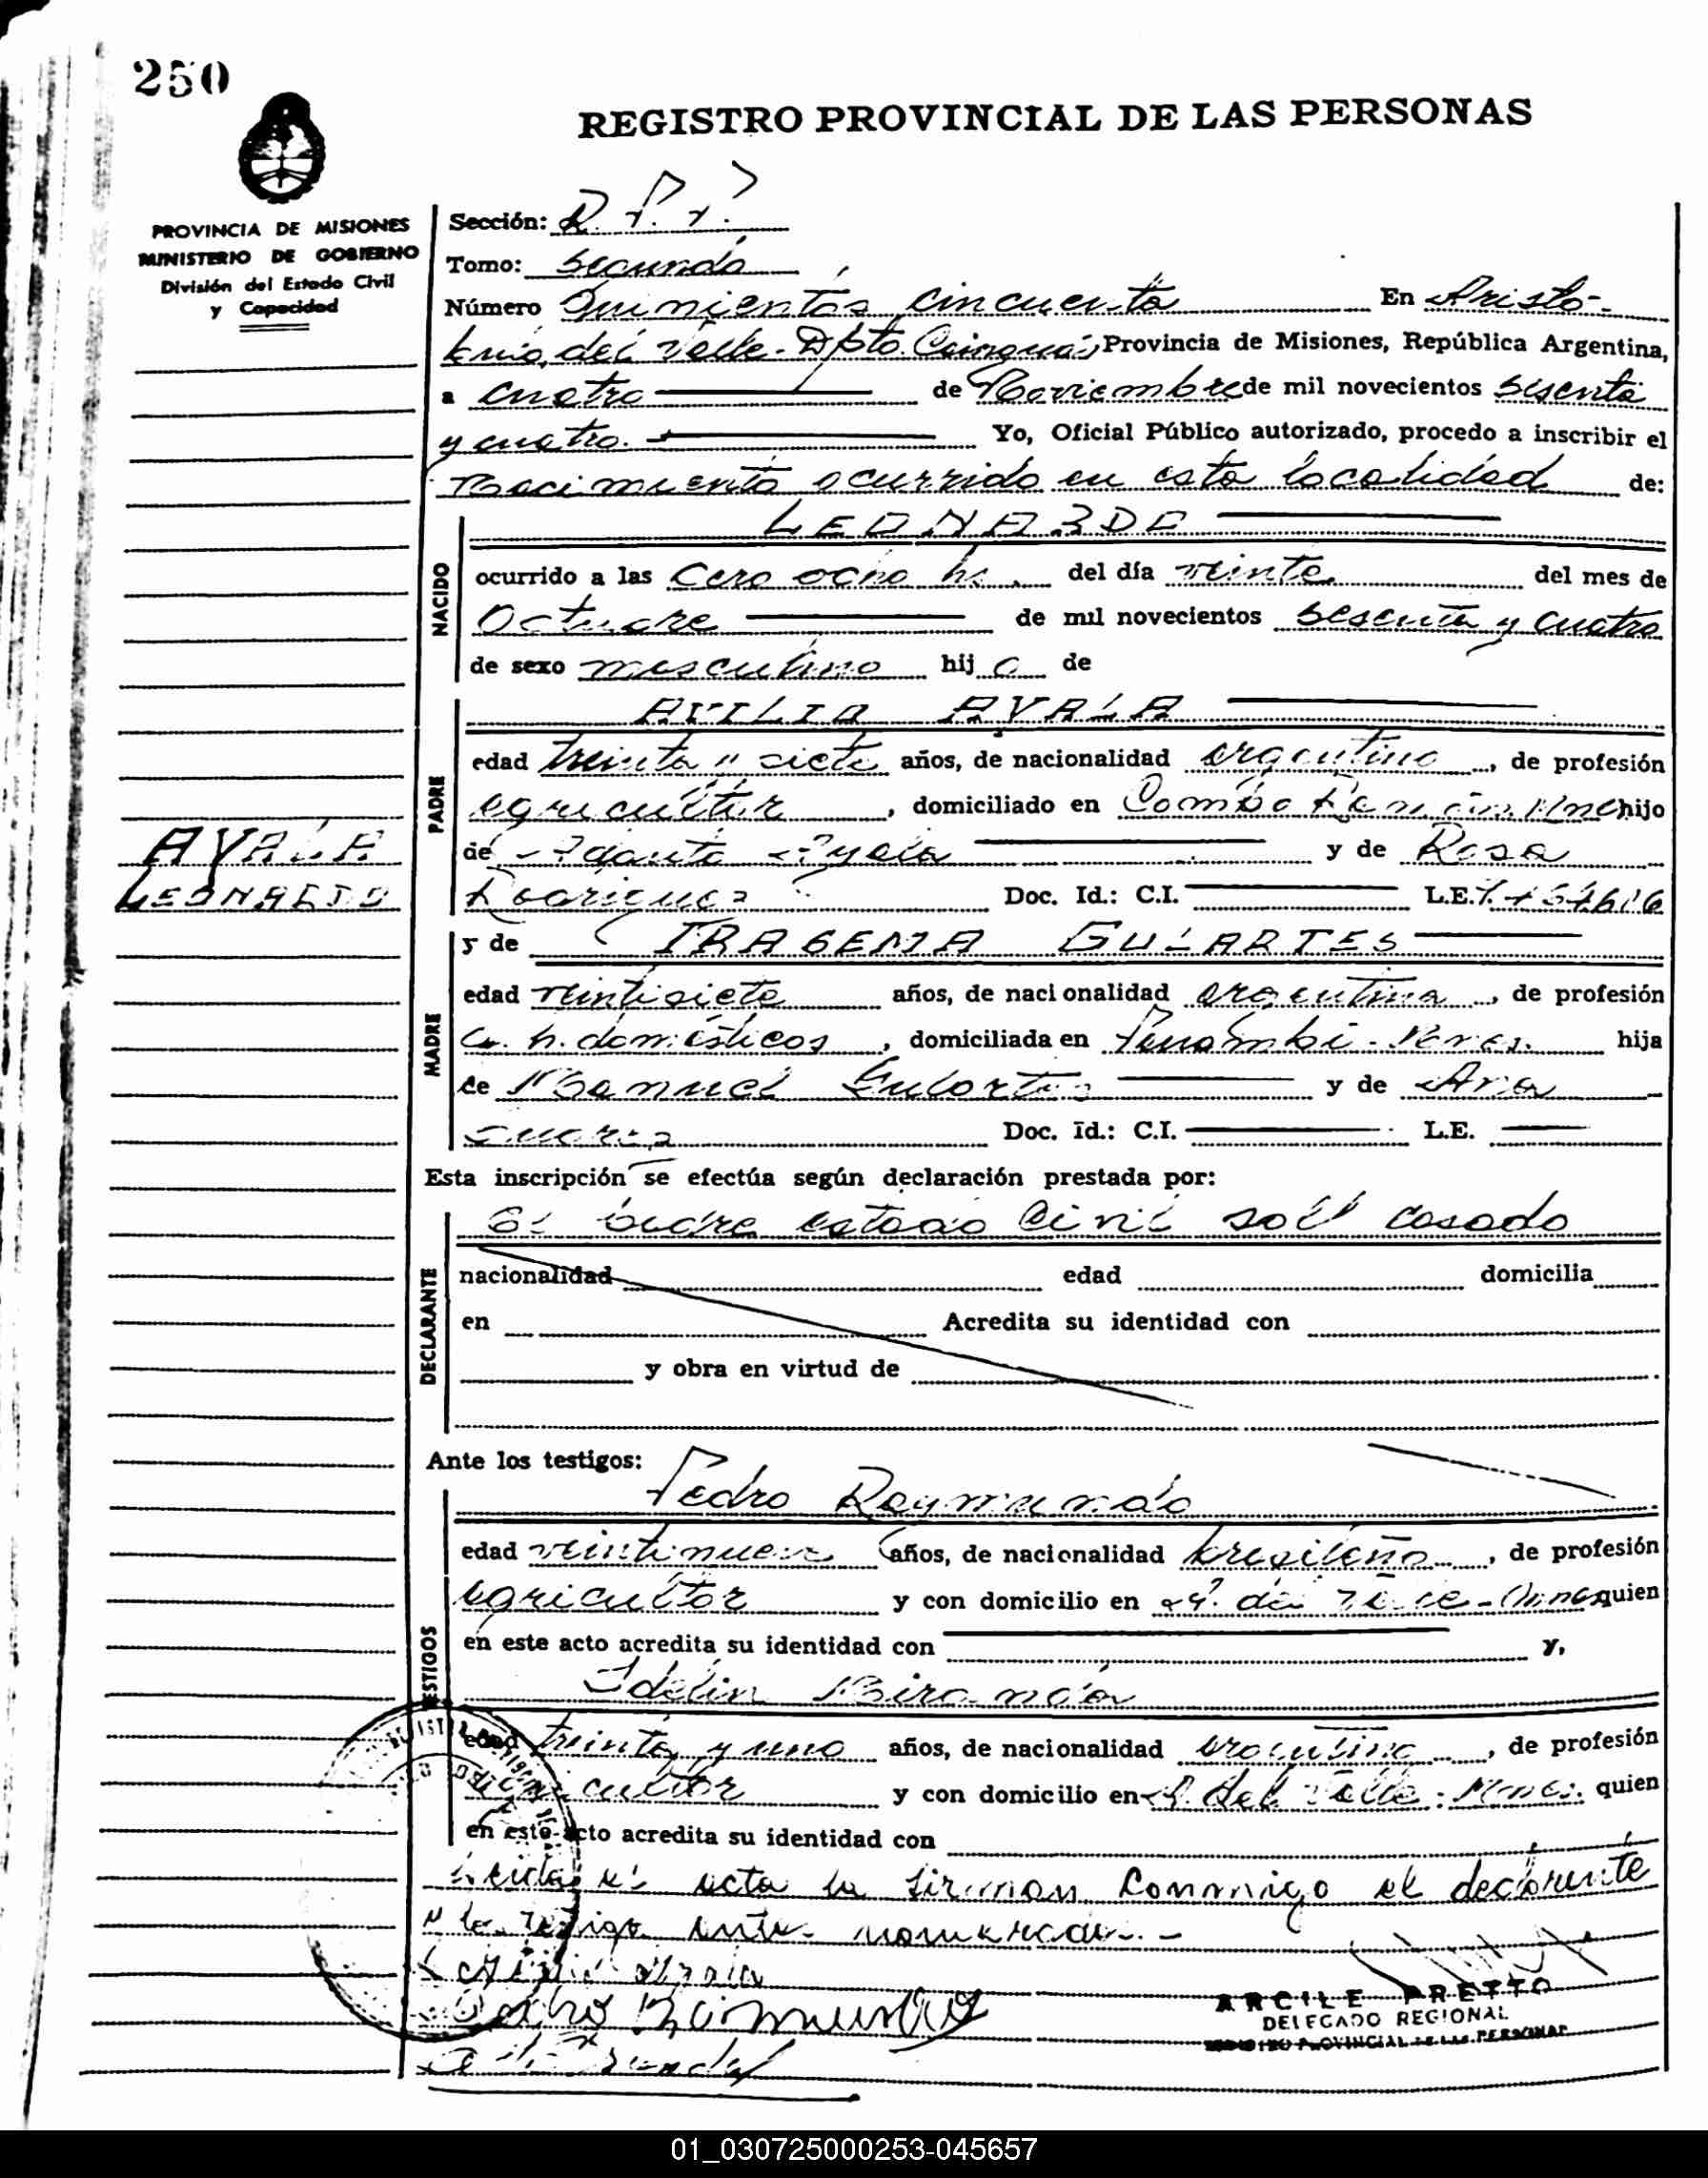 250
REGISTRO PROVINCIAL DE LAS PERSONAS
PROVINCIA DE MISIONES
MINISTERIO DE GOBIERNO
División del Estado Civil
y Capacidad
Sección: R. P. P.
Tomo: Segundo
Número Quinientos cincuenta En Aristó-
bulo del Valle - Dpto. Cainguás, Provincia de Misiones, República Argentina,
a cuatro de Noviembre de mil novecientos sesenta
y cuatro. Yo, Oficial Público autorizado, procedo a inscribir el
Nacimiento ocurrido en esta localidad de:
LEONARDO
NACIDO
ocurrido a las cero ocho hs. del día veinte del mes de
Octubre de mil novecientos sesenta y cuatro
de sexo masculino hij o de
PADRE
AVILIO AYALA
edad treinta y siete años, de nacionalidad argentino, de profesión
agricultor, domiciliado en hijo
de Ayala y de Rosa
Rodriguez Doc. Id.: C.I. L.E.
AYALA
LEONARDO
MADRE
y de IRACEMA GULARTES
edad veintisiete años, de nacionalidad argentina, de profesión
q. h. domésticos, domiciliada en Panambí - Mnes. hija
de Manuel Gulartes y de Ana
Suarez Doc. Id.: C.I. L.E.
Esta inscripción se efectúa según declaración prestada por:
El padre estado civil casado
DECLARANTE
nacionalidad edad domicilia
en Acredita su identidad con
y obra en virtud de
Ante los testigos:
Pedro Raymundo
TESTIGOS
edad veintinueve años, de nacionalidad brasileño, de profesión
agricultor y con domicilio en A. del Valle - Mnes quien
en este acto acredita su identidad con y,
Idelin Miranda
edad treinta y uno años, de nacionalidad argentino, de profesión
agricultor y con domicilio en A. del Valle - Mnes. quien
en este acto acredita su identidad con
Leida el acta la firman conmigo el declarante
y los testigos antes nombrados.-
Avilio Ayala
Pedro Raimundo
ARCILE PRETTO
DELEGADO REGIONAL
REGISTRO PROVINCIAL DE LAS PERSONAS
01_030725000253-045657